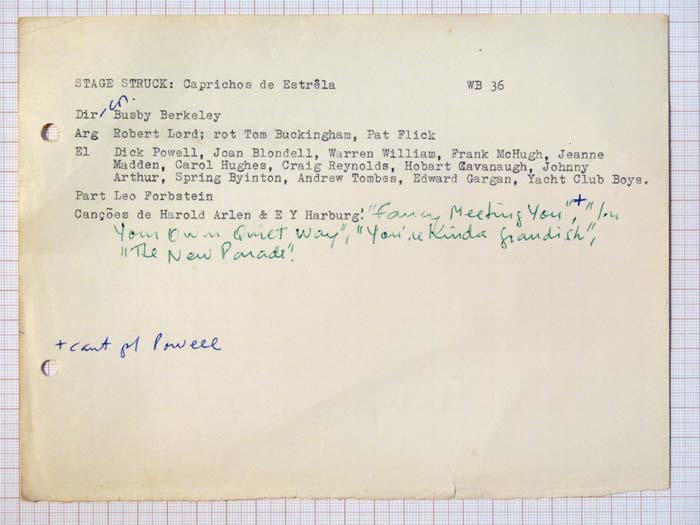 STAGE STRUCK: Caprichos de Estrêla WB 36
Dir, cr. Busby Berkeley
Arg Robert Lord; rot Tom Buckingham, Pat Flick
El Dick Powell, Joan Blondell, Warren William, Frank McHugh, Jeanne
Madden, Carol Hughes, Craig Reynolds, Hobart Cavanaugh, Johnny
Arthur, Spring Byinton, Andrew Tombes, Edward Gargan, Yacht Club Boys.
Part Leo Forbstein
Canções de Harold Arlen & E Y Harburg: "Fancy Meeting You",+ "In
Your Own Quiet Way", "You're Kinda grandish",
"The New Parade".
+ cant pl Powell